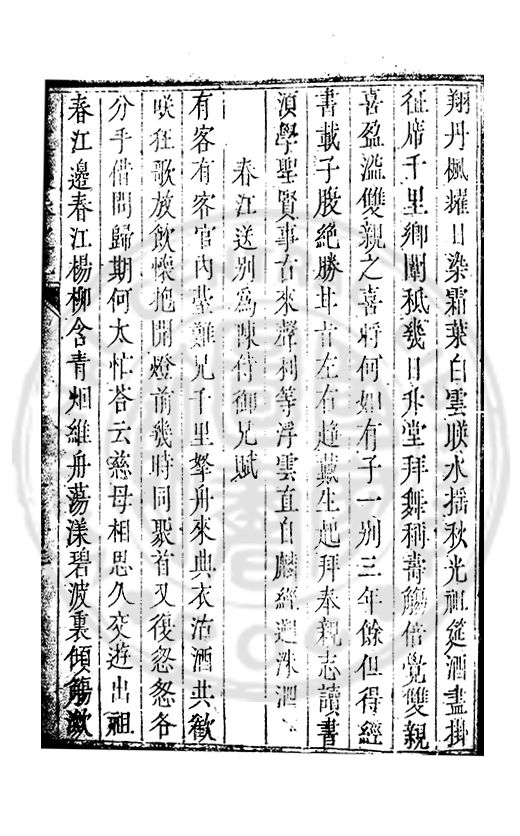 翔丹楓耀日染霜葉白雲映水揺秋光祖筵酒盡掛
征席千里鄉關秪幾日升堂拜舞稱壽觴倍覺雙親
喜盈溢雙親之喜將何如有子一別三年餘但得經
書載子腹絶勝甘旨左右趨戴生起拜奉親志讀書
湏學聖賢事古來聲利等浮雲直自麟經遡洙泗
春江送別為陳侍御兄賦
有客有客官內臺難兄千里拏舟來典衣沽酒共歡
咲狂歌放飲懷抱開燈前幾時同聚首又復怱怱各
分手借問歸期何太忙答云慈母相思久交遊出祖
春江邊春江楊柳含青烟維舟蕩漾碧波裏傾觴歡